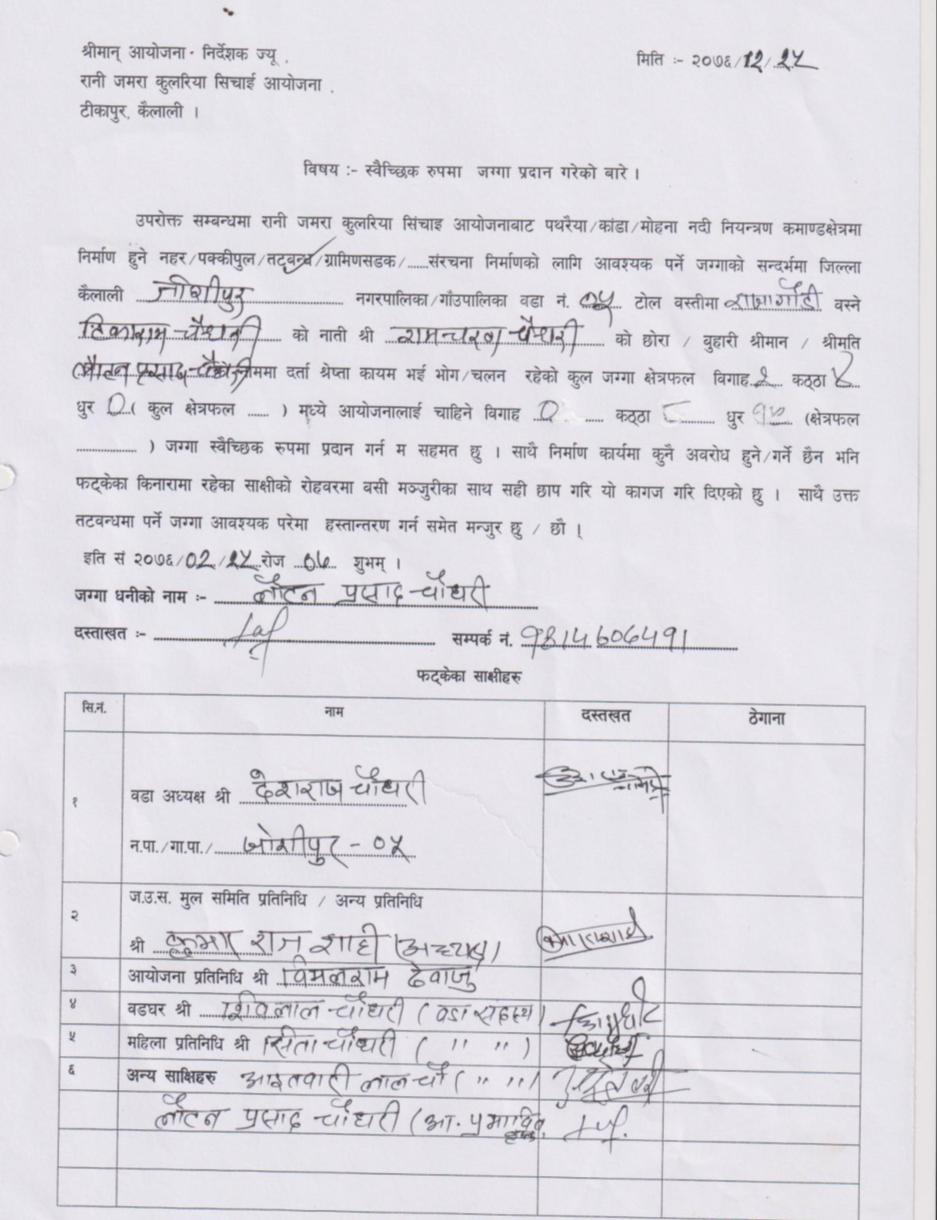 श्रीमान् आयोजना - निर्देशक ज्यू , मिति :- २०७६/12/२५
रानी जमरा कुलरिया सिचाई आयोजना .
टीकापुर, कैलाली ।
विषय :- स्वैच्छिक रुपमा जग्गा प्रदान गरेको बारे ।
उपरोक्त सम्बन्धमा रानी जमरा कुलरिया सिंचाइ आयोजनाबाट पथरैया/कांडा/मोहना नदी नियन्त्रण कमाण्डक्षेत्रमा
निर्माण हुने नहर/पक्कीपुल/तट्बन्ध/ग्रामिणसडक/......संरचना निर्माणको लागि आवश्यक पर्ने जग्गाको सन्दर्भमा जिल्ला
कैलाली जोशीपुर नगरपालिका/गाँउपालिका वडा नं. ०५ टोल वस्तीमा बस्ने
टिकाराम चौधरी को नाती श्री रामचरण चौधरी को छोरा / बुहारी श्रीमान / श्रीमति
लौटन प्रसाद चौधरी दर्ता श्रेप्ता कायम भई भोग/चलन रहेको कुल जग्गा क्षेत्रफल विगाह कठ्ठा ४
धुर 0 ( कुल क्षेत्रफल ...... ) मध्ये आयोजनालाई चाहिने विगाह 0 ...... कठ्ठा धुर (क्षेत्रफल
.................. ) जग्गा स्वैच्छिक रुपमा प्रदान गर्न म सहमत छु । साथै निर्माण कार्यमा कुनै अवरोध हुने/गर्ने छैन भनि
फट्केका किनारामा रहेका साक्षीको रोहवरमा बसी मञ्जुरीका साथ सही छाप गरि यो कागज गरि दिएको छु । साथै उक्त
तटवन्धमा पर्ने जग्गा आवश्यक परेमा हस्तान्तरण गर्न समेत मन्जुर छु / छौ ।
इति सं २०७६/02/२५ रोज शुभम् ।
जग्गा धनीको नाम :- लौटन प्रसाद चौधरी
दस्ताखत :- सम्पर्क नं. 9814606491
फट्केका साक्षीहरु
सि.नं. नाम दस्तखत ठेगाना
१ वडा अध्यक्ष श्री देशराज चौधरी
न.पा./गा.पा./ जोशीपुर - ०५
२ ज.उ.स. मुल समिति प्रतिनिधि / अन्य प्रतिनिधि
श्री कुमार राज शाही (अध्यक्ष)
३ आयोजना प्रतिनिधि श्री विमलराम देवाजु
४ वडघर श्री शिवलाल चौधरी ( वडा सदस्य )
५ महिला प्रतिनिधि श्री सिता चौधरी ( " " )
६ अन्य साक्षिहरु आइतवारी लाल चौ ( " " )
लौटन प्रसाद चौधरी (आ.